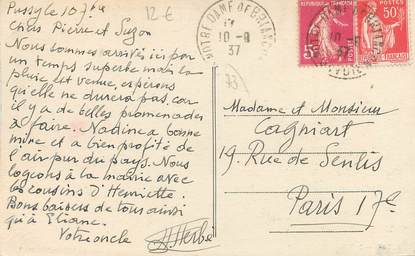 Pussy le 10
12 €
Chers Pierre et Suzon
Nous sommes arrivés ici par
un temps superbe mais la
pluie est venue, espérons
qu'elle ne durera pas, car
il y a de belles promenades
à faire. Nadine a bonne
mine et a bien profité de
l'air pur du pays. Nous
logeons à la mairie avec
les cousins d'Henriette.
Bons baisers de tous ainsi
qu'à Eliane.
Votre oncle
NOTRE DAME DE BRIANÇON
10-8
37
73
REPUBLIQUE FRANÇAISE
5c
50c
10
37
Madame et Monsieur
Cagniart
19, Rue de Senlis
Paris 17e